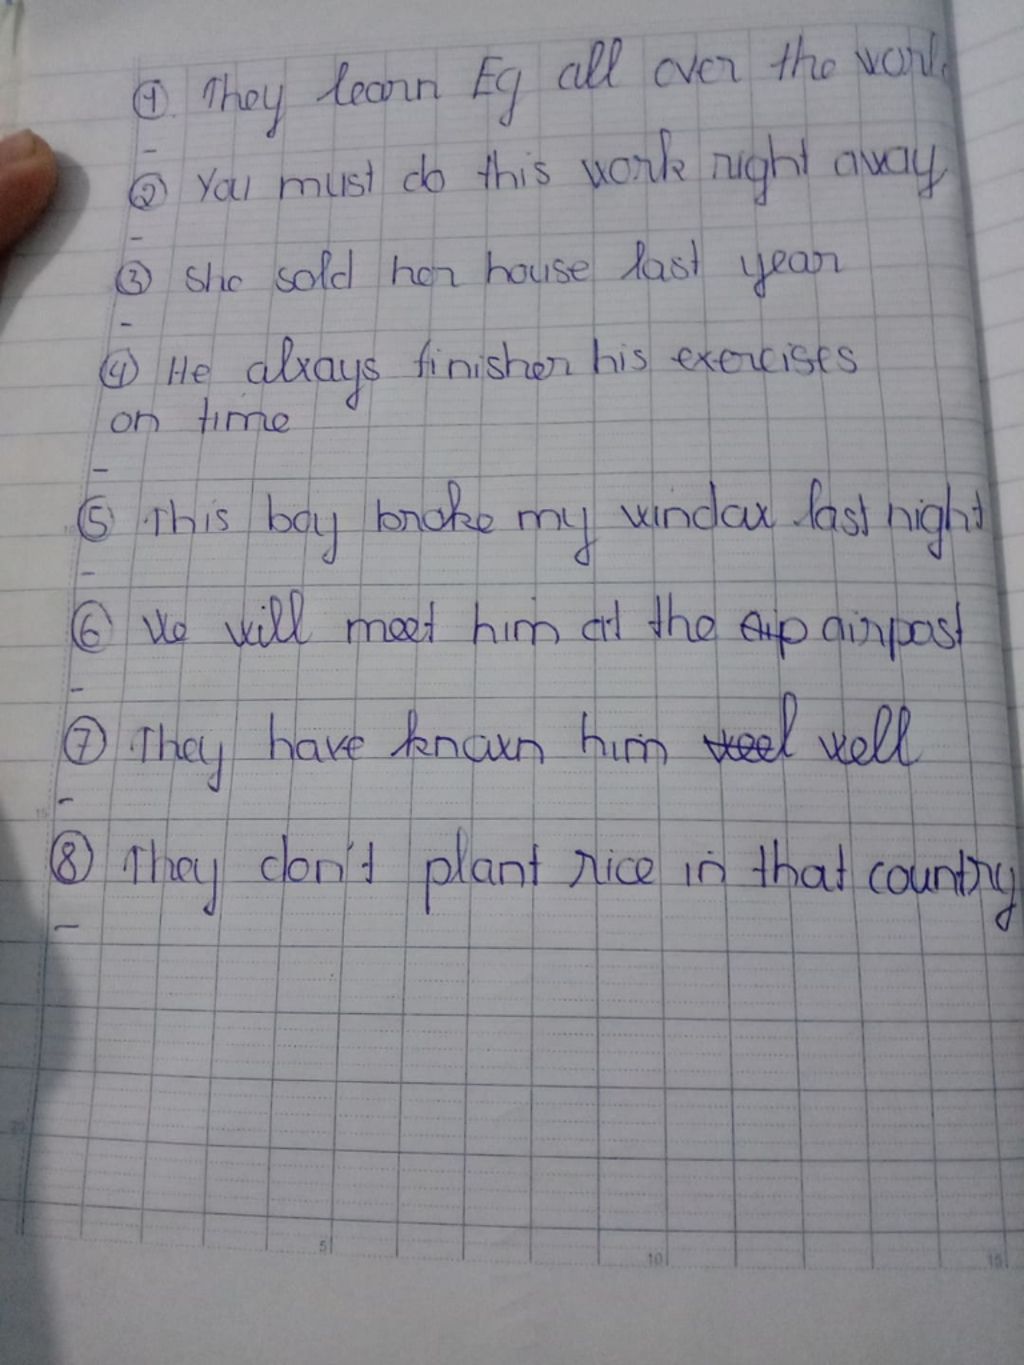 ① They learn Eg all over the world
-
② You must do this work right away
-
③ She sold her house last year
-
④ He always finisher his exercises
on time
-
⑤ This boy broke my window last night
-
⑥ We will meet him at the airport
-
⑦ They have known him well
-
⑧ They don't plant rice in that country
-
5 10 15